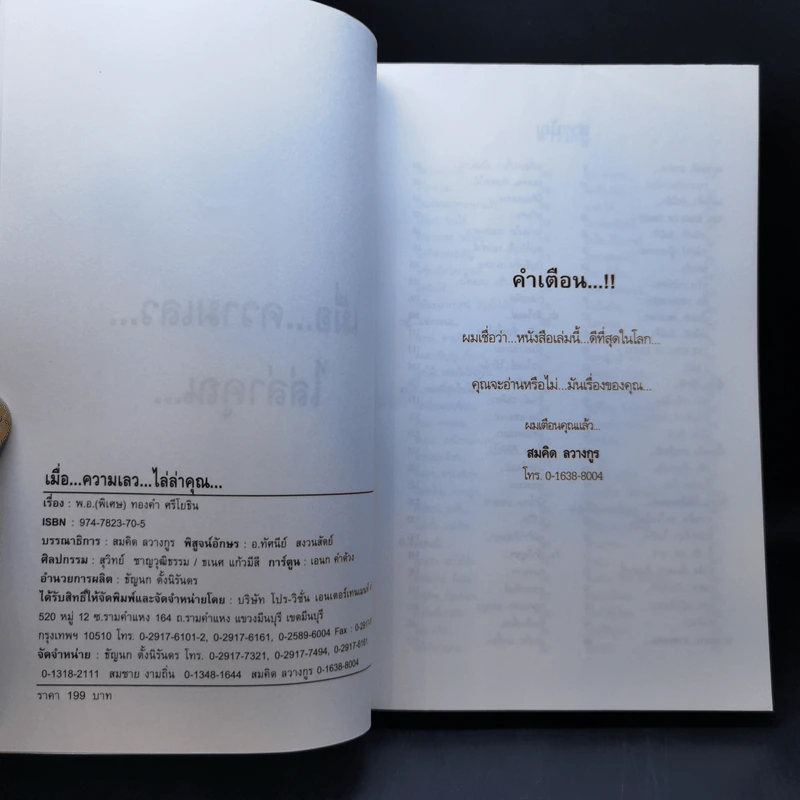 เมื่อ...ความเลว...ไล่ล่าคุณ...
เรื่อง : พ.อ.(พิเศษ) ทองคำ ศรีโยธิน
ISBN : 974-7823-70-5
บรรณาธิการ : สมคิด ลวางกูร พิสูจน์อักษร : อ.ทัศนีย์ สงวนสัตย์
ศิลปกรรม : สุวิทย์ ชาญวุฒิธรรม / ธเนศ แก้วมีสี การ์ตูน : เอนก คำด้วง
อำนวยการผลิต : ธัญนก ตั้งนิรันดร
ได้รับสิทธิ์ให้จัดพิมพ์และจัดจำหน่ายโดย : บริษัท โปร-วิชั่น เอนเตอร์เทนเมนท์
520 หมู่ 12 ซ.รามคำแหง 164 ถ.รามคำแหง แขวงมีนบุรี เขตมีนบุรี
กรุงเทพฯ 10510 โทร. 0-2917-6101-2, 0-2917-6161, 0-2589-6004 Fax :
จัดจำหน่าย : ธัญนก ตั้งนิรันดร โทร. 0-2917-7321, 0-2917-7494, 0-2917-6161
0-1318-2111 สมชาย งามถิ่น 0-1348-1644 สมคิด ลวางกูร 0-1638-8004
ราคา 199 บาท
คำเตือน...!!
ผมเชื่อว่า...หนังสือเล่มนี้...ดีที่สุดในโลก...
คุณจะอ่านหรือไม่...มันเรื่องของคุณ...
ผมเตือนคุณแล้ว...
สมคิด ลวางกูร
โทร. 0-1638-8004